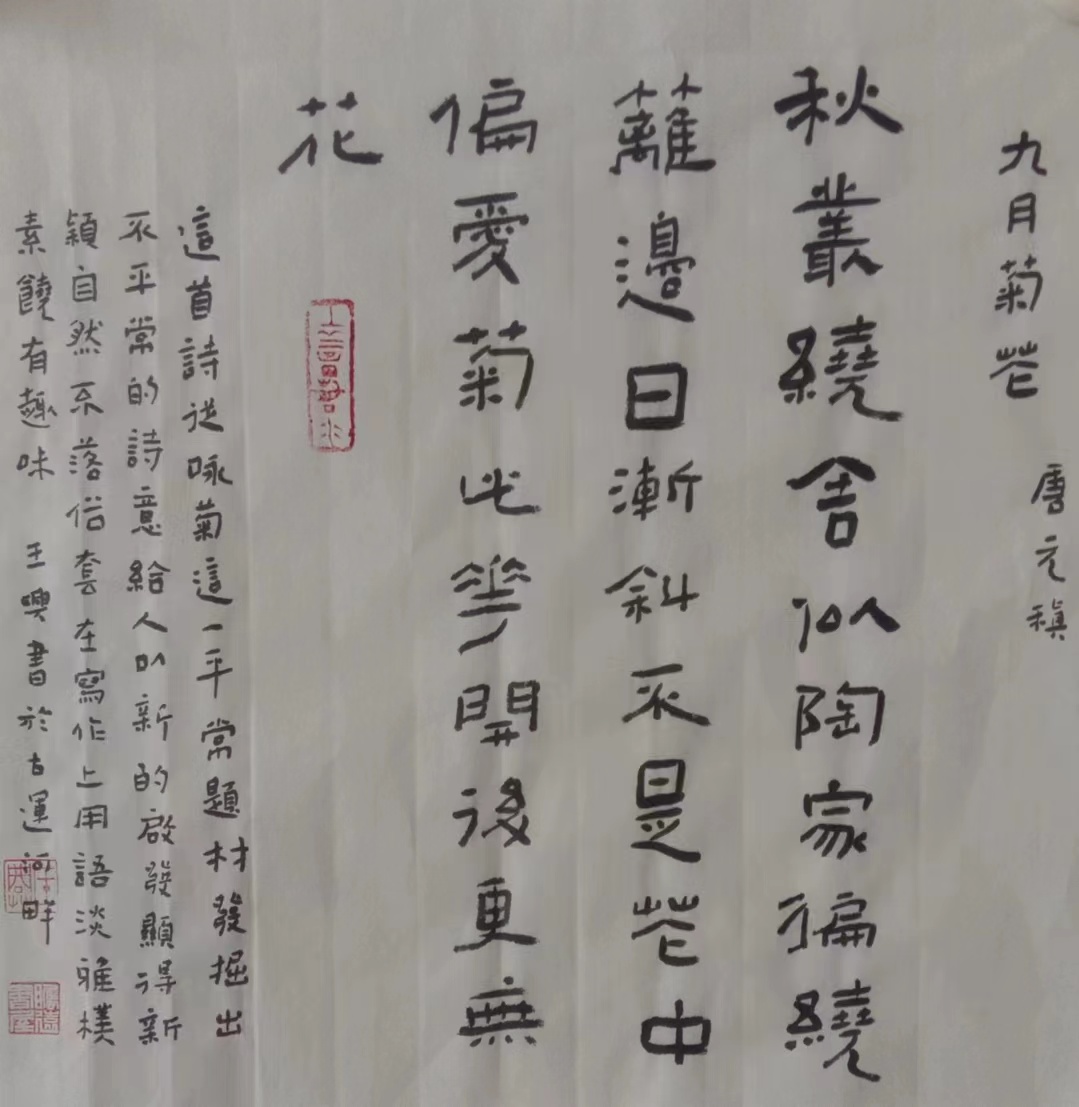 九月菊花 唐元稹
秋叢繞舍似陶家徧繞
蘺邊日漸斜不是花中
偏愛菊此華開後更無
花
這首詩從咏菊這一平常題材發掘出
不平常的詩意給人以新的啟發顯得新
穎自然不落俗套在寫作上用語淡雅樸
素饒有趣味 王奭書於古運河畔